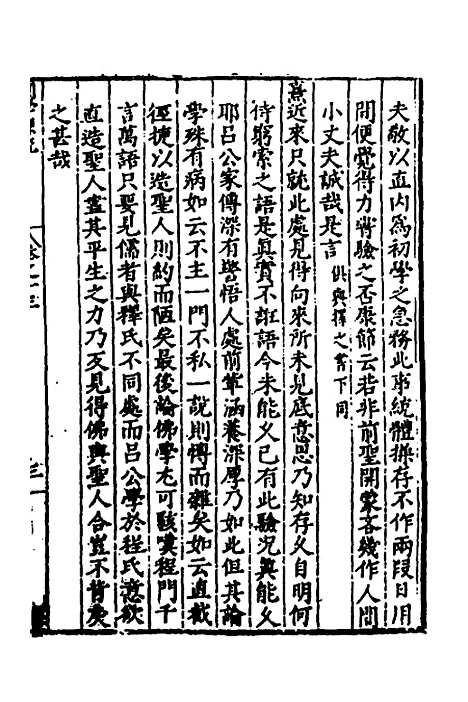 夫敬以直內為初學之急務此弟統體操存不作兩段日用
間便覺得力甞驗之否康節云若非前聖開蒙吝幾作人間
小丈夫誠哉是言 俱與擇之書下同
熹近來只就此處見得向來所未見底意思乃知存久自明何
待窮索之語是真實不誑語今未能久已有此驗况真能久
耶呂公家傳深有警悟人處前軰涵養深厚乃如此但其論
學殊有病如云不主一門不私一說則愽而雜矣如云直截
徑捷以造聖人則約而陋矣最後論佛學尤可駭嘆程門千
言萬語只要見儒者與釋氏不同處而呂公學於程氏意欲
直造聖人盡其平生之力乃反見得佛與聖人合豈不背戾
之甚哉